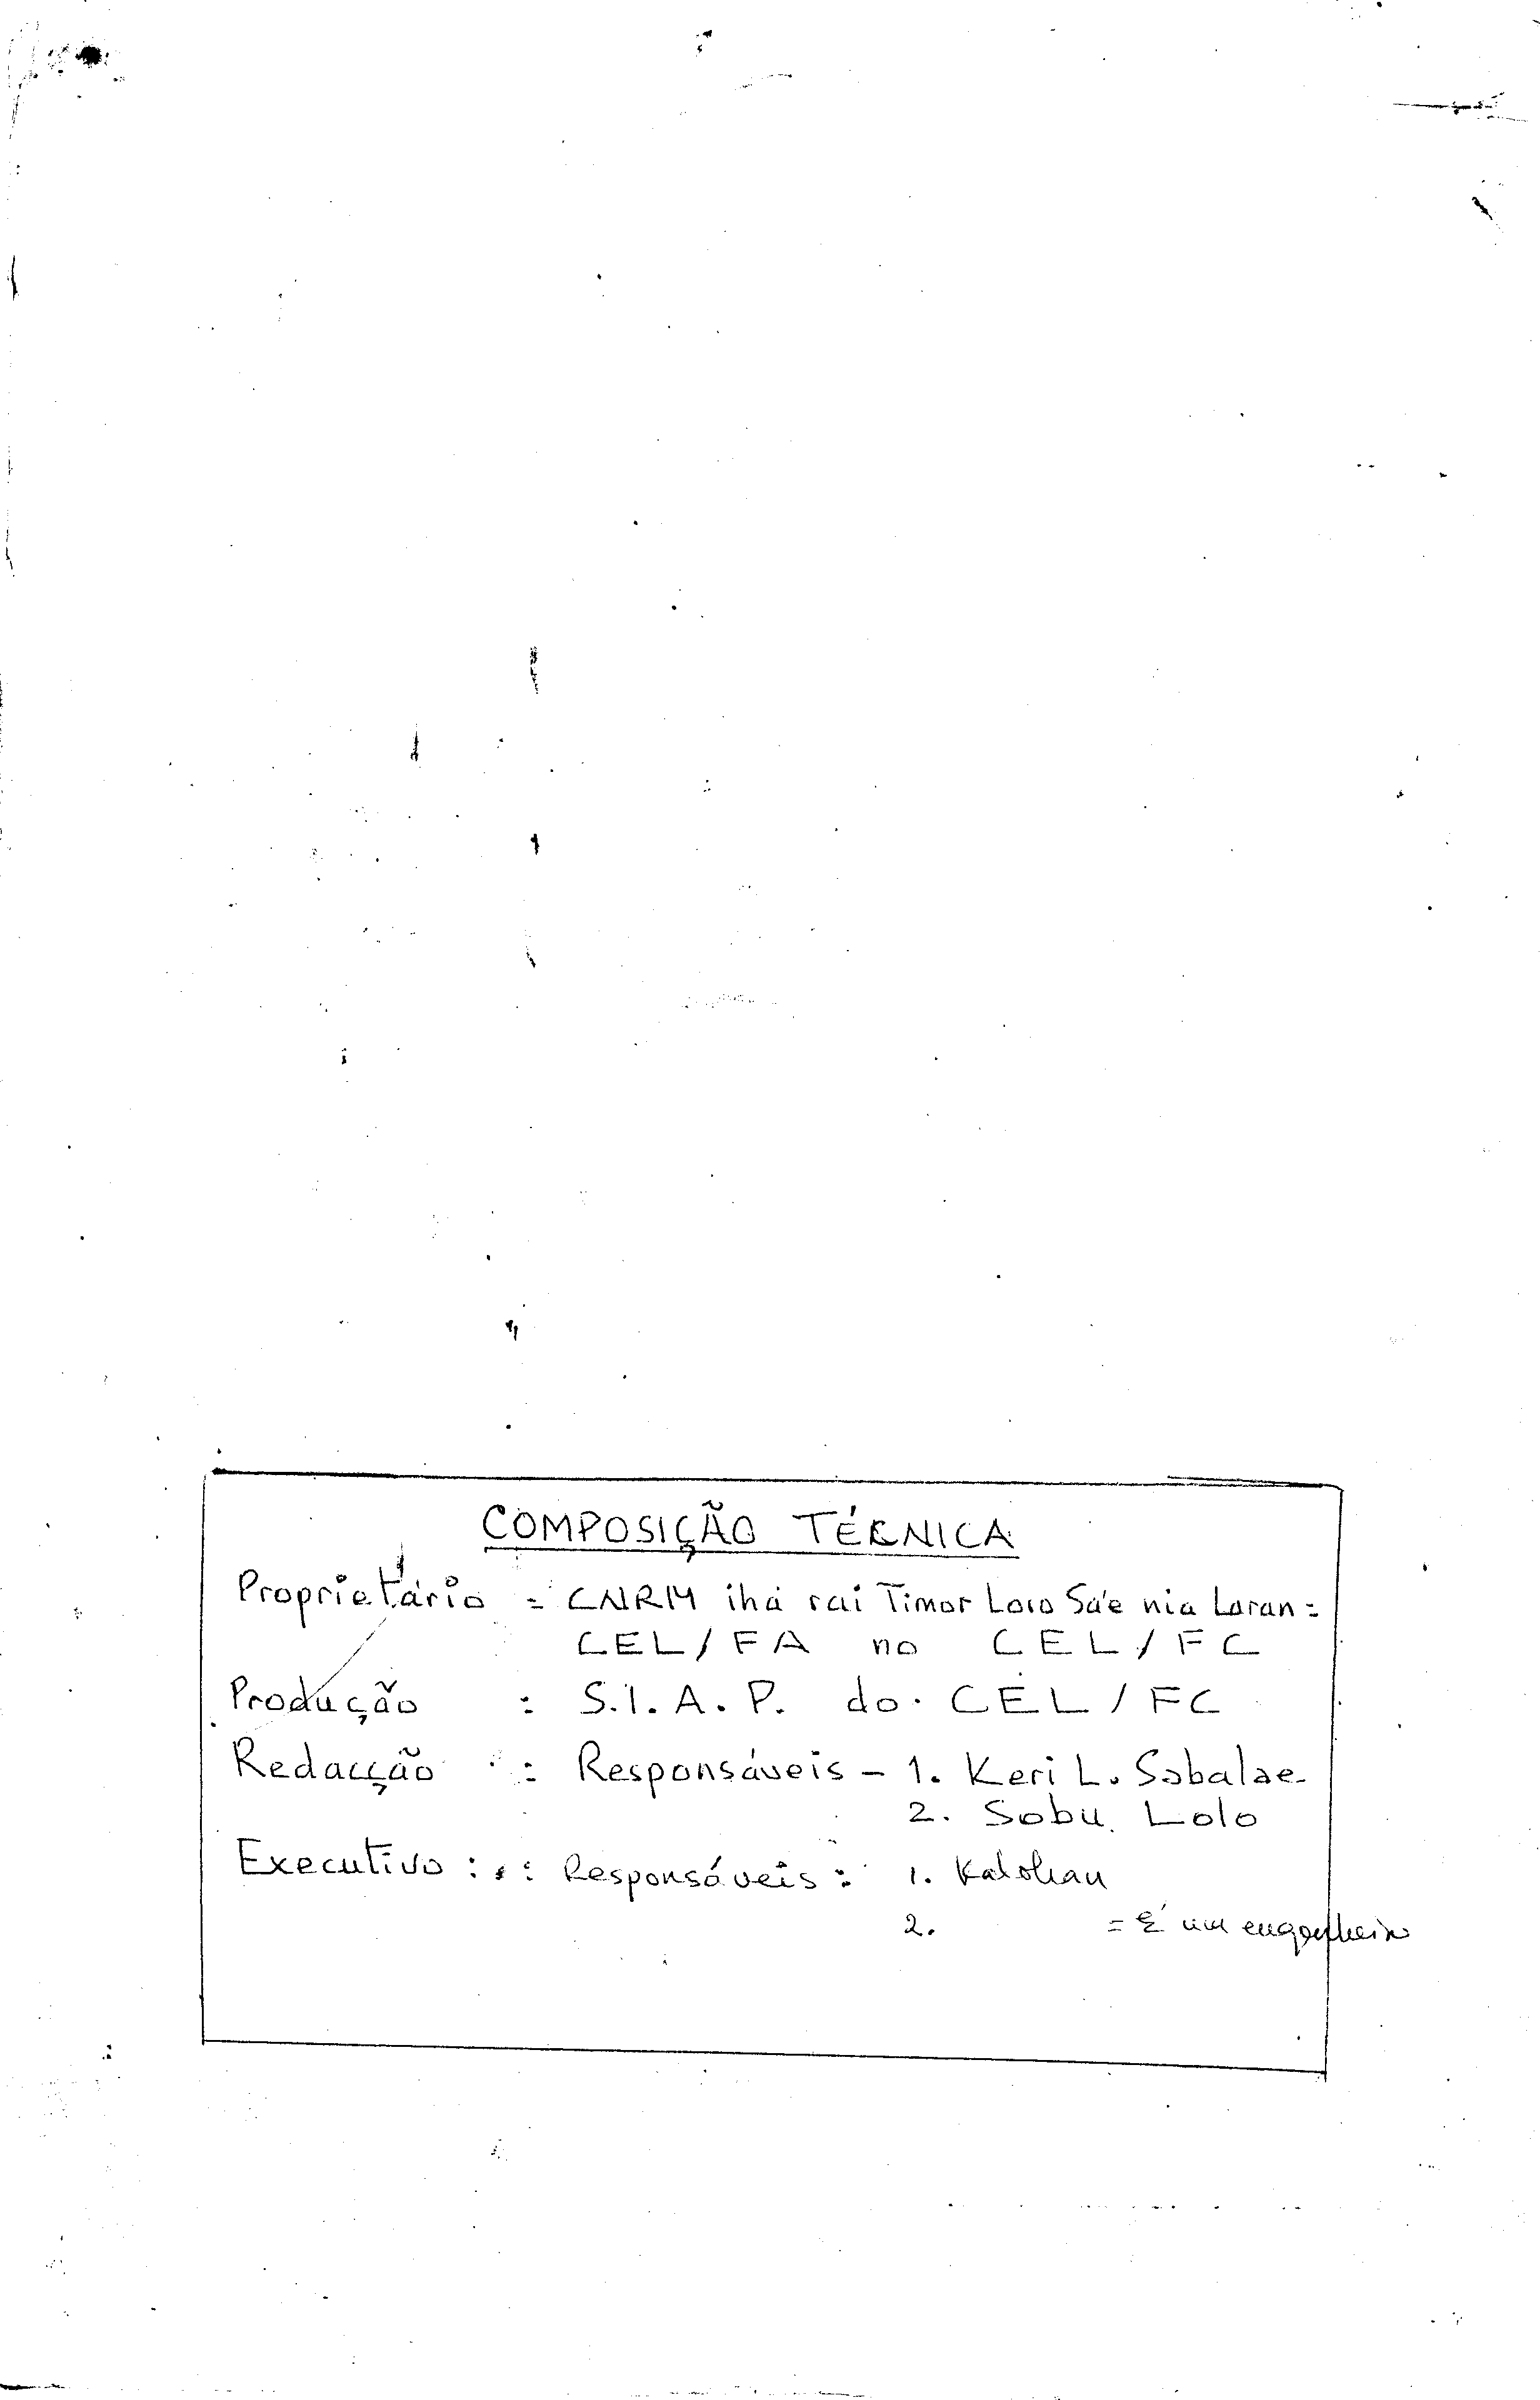 COMPOSIÇÃO TÉCNICA
Proprietário = CNRM iha rai Timor Loro Sa'e nia Laran =
CEL / FA no CEL / FC
Produção : S.I.A.P. do CEL / FC
Redacção : Responsáveis - 1. Keri L. Sabalae
2. Sobu Lolo
Executivo : : Responsáveis : 1. Kalohan
2. = É um